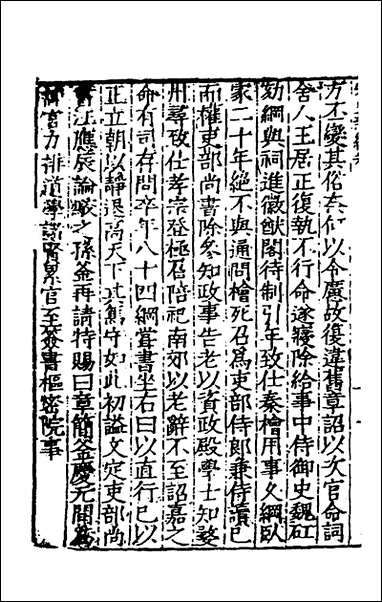 方丕變其俗奈何以令廣故復違舊章詔以次官命詞
舍人王居正復執不行命遂寢除給事中侍御史魏矼
劾綱與祠進徽猷閣待制引年致仕秦檜用事久綱臥
家二十年絕不與通問檜死召爲吏部侍郎兼侍讀已
而權吏部尚書除參知政事告老以資政殿學士知婺
州尋致仕孝宗登極召陪祀南郊以老辭不至詔嘉之
命有司存問卒年八十四綱嘗書坐右曰以直行已以
正立朝以靜退高天下其篤守如此初謚文定吏部尚
書汪應辰論駁之孫釜再請特賜曰章簡釜慶元間爲
諫官力排道學諸賢累官至簽書樞密院事